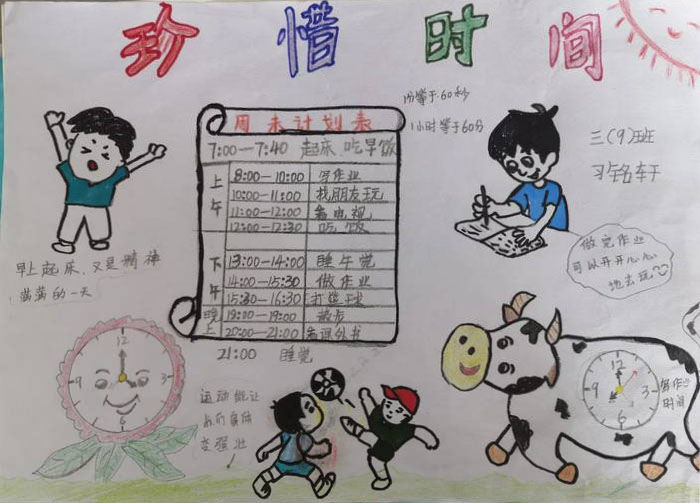 珍惜时间
1份等于60秒
1小时等于60分
三(9)班
周末计划表
7:00—7:40 起床、吃早饭
上午
8:00—10:00 写作业
10:00—11:00 找朋友玩
11:00—12:00 看电视
12:00—12:30 吃饭
下午
13:00—14:00 睡午觉
14:00—15:30 做作业
15:30—16:30 打篮球
晚上
19:00—19:00 散步
20:00—21:00 看课外书
21:00 睡觉
早上起床、又是精神
满满的一天
做完作业
可以开开心心
地去玩
12
3
6
9
运动能让
我们身体
变强壮
12
3
6
9
写作业
时间